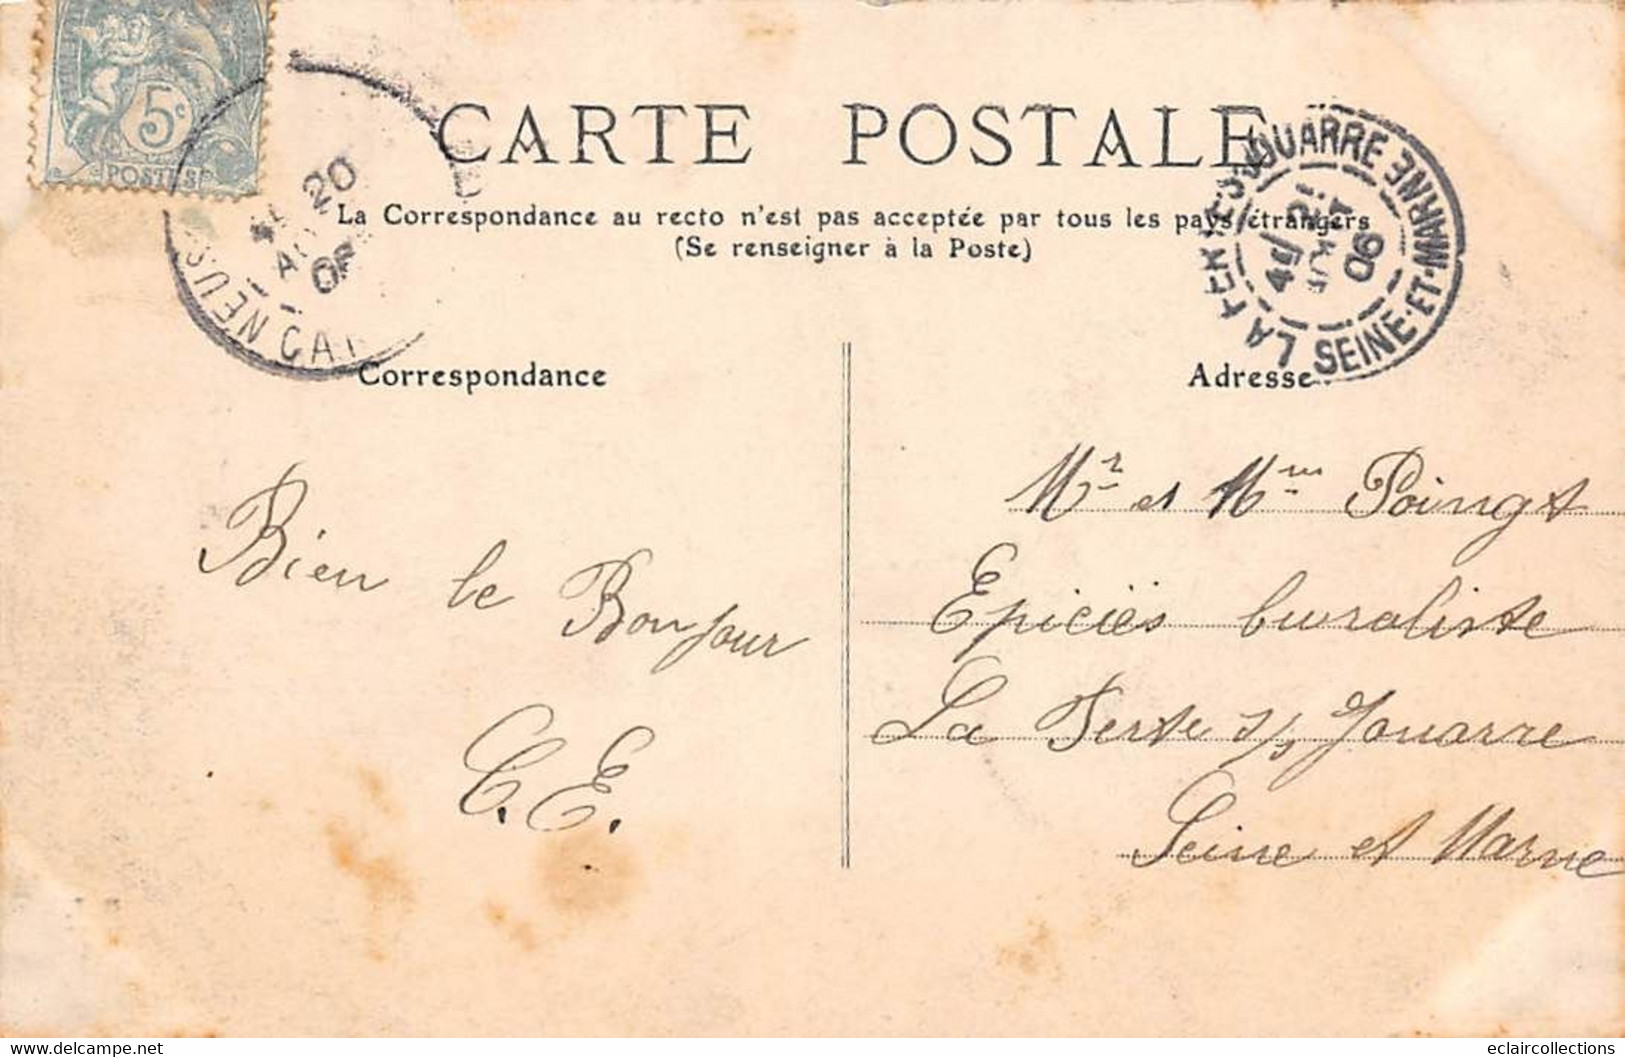 5c
POSTES
20
CARTE POSTALE
La Correspondance au recto n'est pas acceptée par tous les pays étrangers
(Se renseigner à la Poste)
LA FERTE-S-JOUARRE SEINE-ET-MARNE
06
Correspondance
Adresse
Bien le Bonjour
C. E.
Mr et Mme Poingt
Epiciès buraliste
La Ferte s/s Jouarre
Seine et Marne
www.delcampe.net
eclaircollections